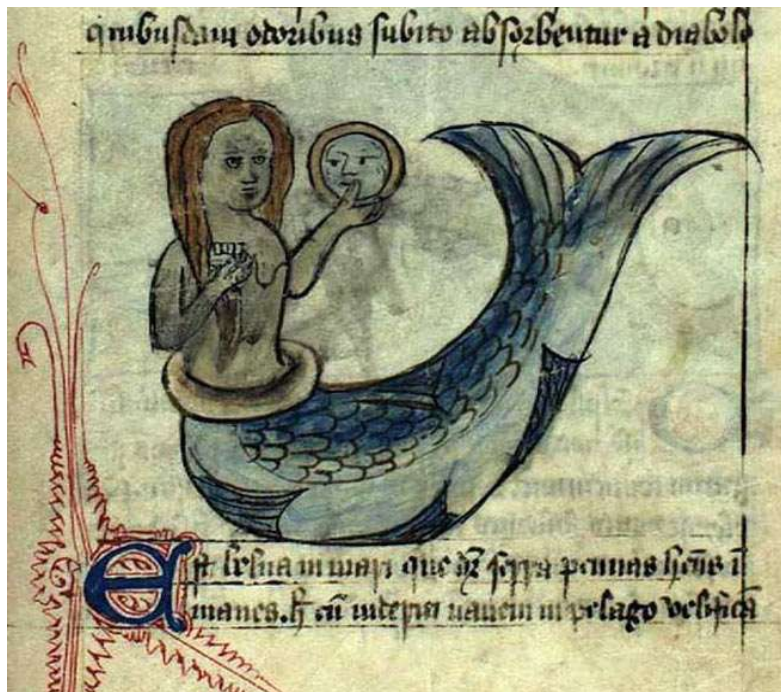 quibusdam odoribus subito absorbentur a diabolo
Est belua in mari que dr̄ serra pennas hn̄s i
manes. h̄ cū uiderit nauem in pelago velificā